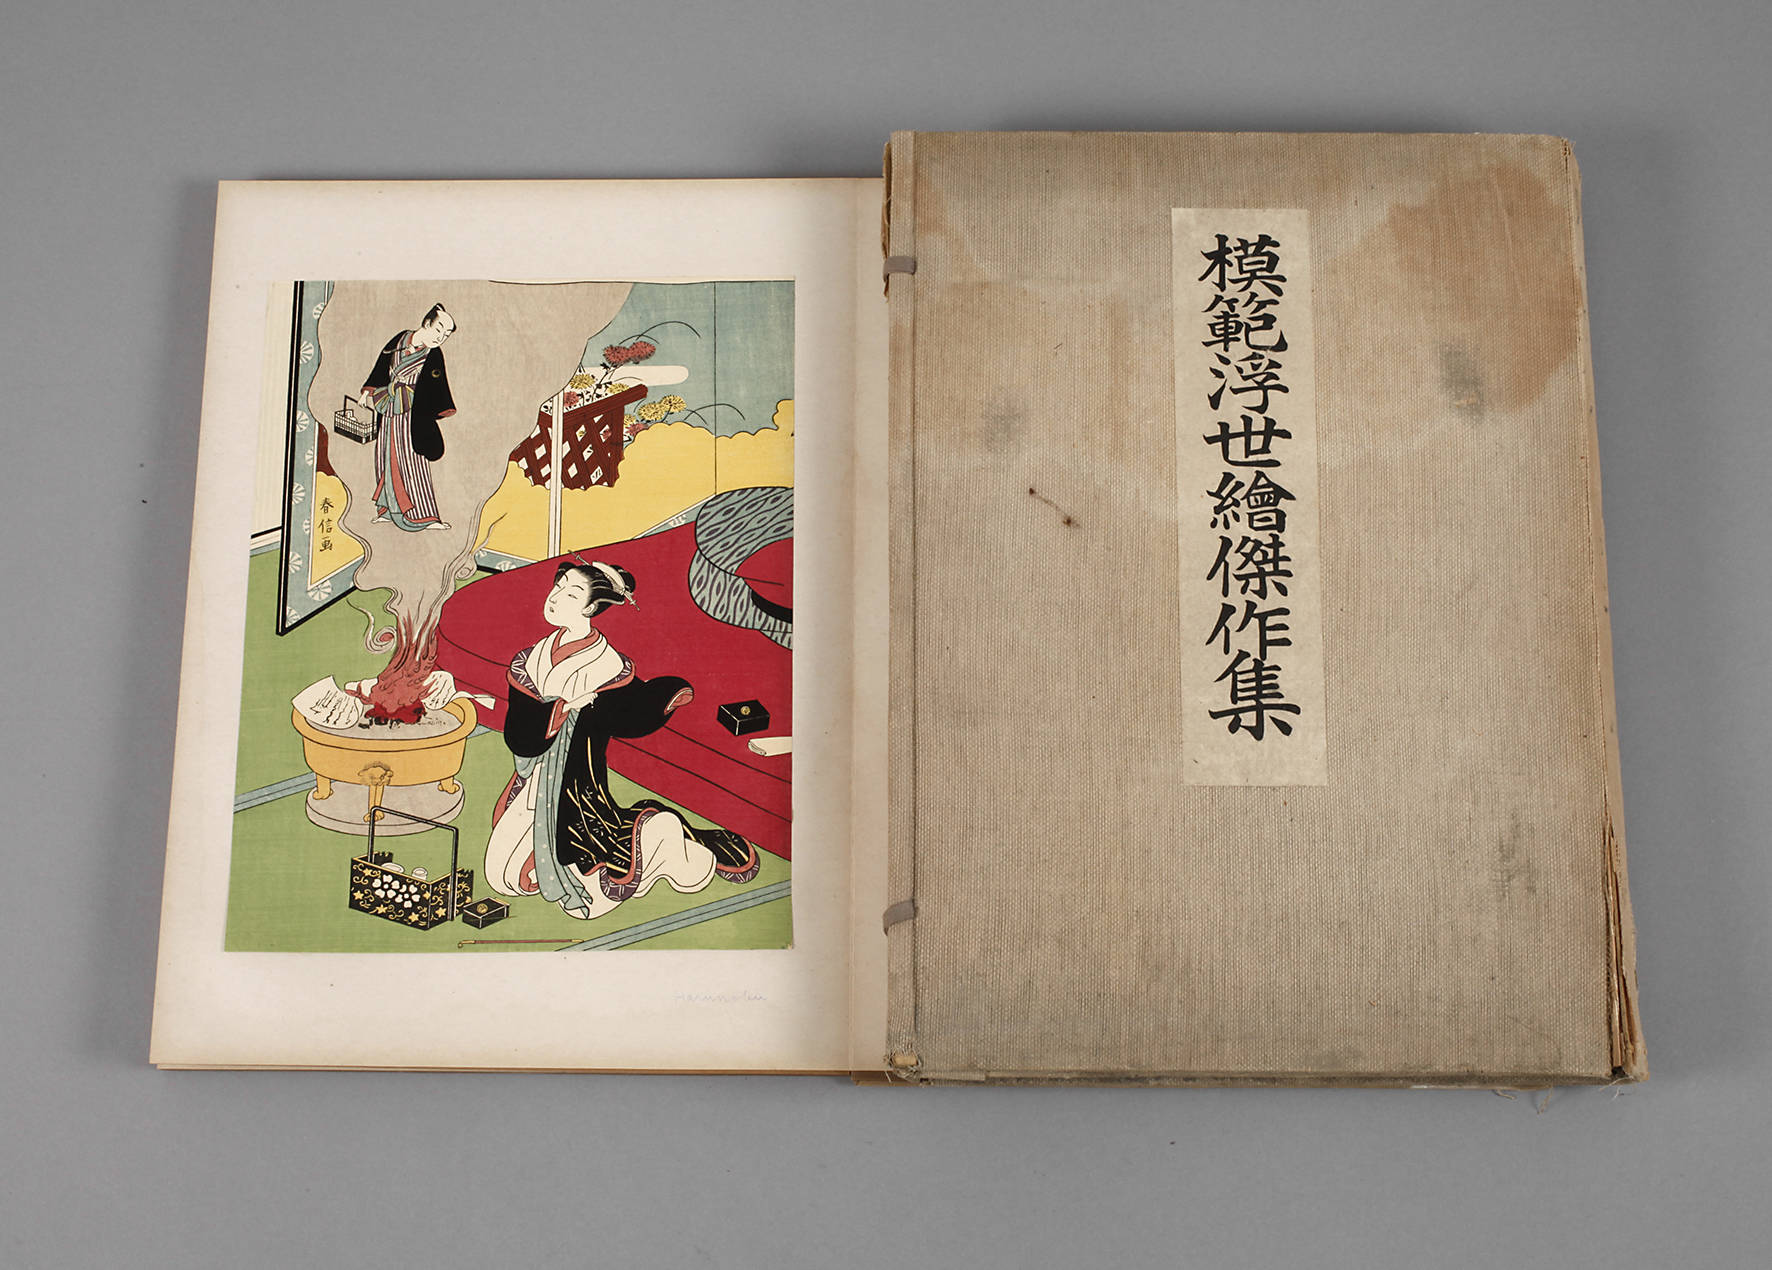 春信画
Harunobu
模範浮世繪傑作集